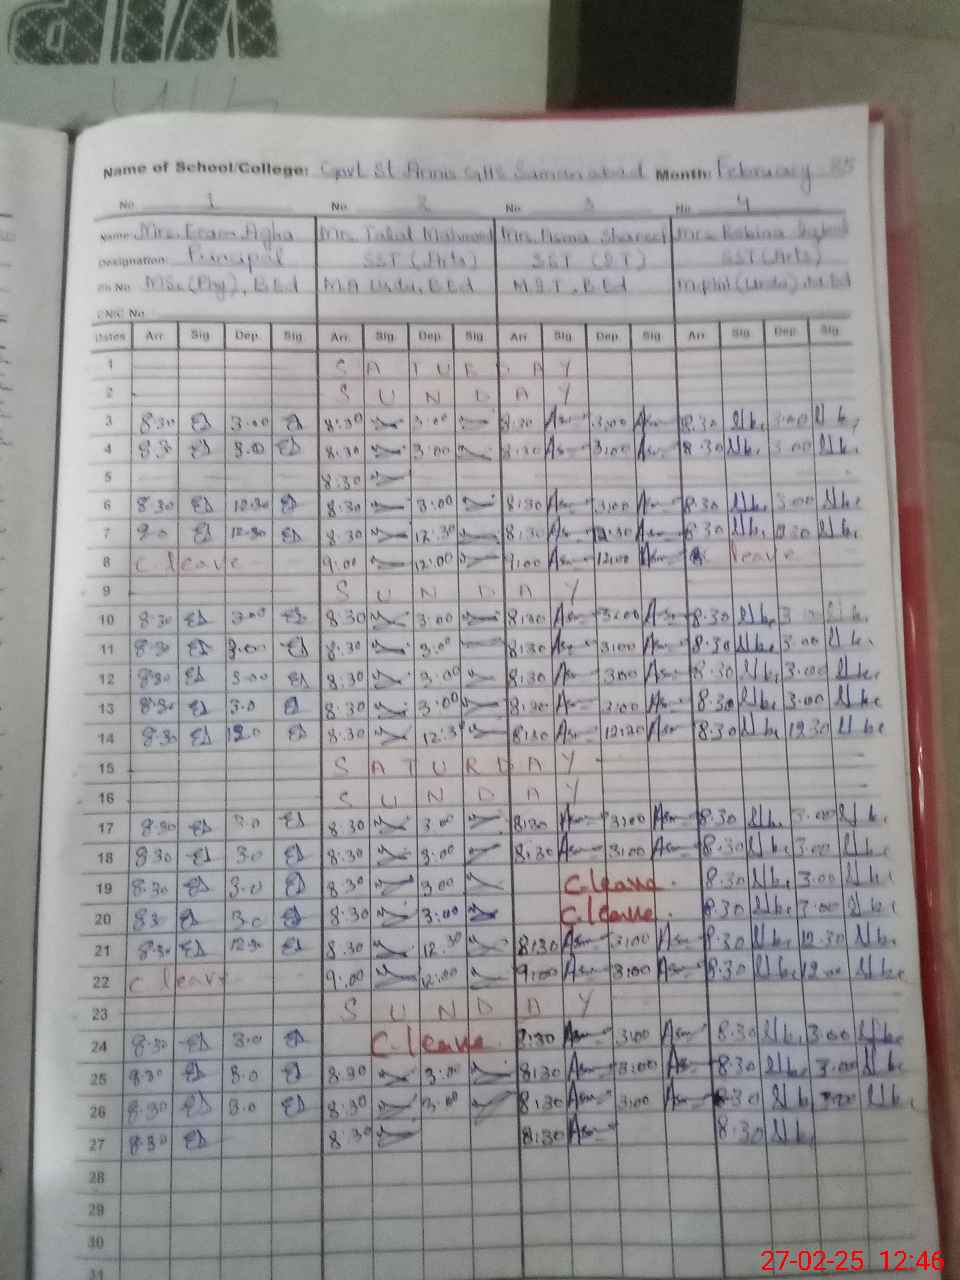 VIP
Name of School/College: Govt St. Annis GHS Samanabad Month: February 25
No. 1 No. 2 No. 3 No. 4
Name: Mrs. Eram Agha Mrs. Talat Mahmood Mrs. Asma Shareef Mrs. Robina
Designation: Principal SST (Arts) SST (I.T) SST (Arts)
Ph No. MSc (Phy), B.Ed M.A Urdu, B.Ed M.I.T, B.Ed M.phil (Urdu), M.Ed
CNIC No.
Dates Arr. Sig. Dep. Sig. Arr. Sig. Dep. Sig. Arr. Sig. Dep. Sig. Arr. Sig. Dep. Sig.
1 SATURDAY
2 SUNDAY
3 8:30 3:00 8:30 3:00 8:30 Asm 3:00 Asm 8:30 3:00
4 8:30 3:00 8:30 3:00 8:30 Asm 3:00 Asm 8:30 3:00
5 8:30
6 8:30 12:30 8:30 3:00 8:30 Asm 3:00 Asm 8:30 3:00
7 9:0 12:30 8:30 12:30 8:30 Asm 12:30 Asm 8:30 12:30
8 C. leave 9:00 12:00 9:00 Asm 12:00 Asm leave
9 SUNDAY
10 8:30 3:00 8:30 3:00 8:30 Asm 3:00 Asm 8:30
11 8:30 3:00 8:30 3:00 8:30 Asm 3:00 Asm 8:30 3:00
12 8:30 3:00 8:30 3:00 8:30 Asm 3:00 Asm 8:30 3:00
13 8:30 3:0 8:30 3:00 8:30 Asm 3:00 Asm 8:30 3:00
14 8:30 8:30 12:30 8:30 Asm 12:30 Asm 8:30 12:30
15 SATURDAY
16 SUNDAY
17 8:30 3:0 8:30 3:00 8:30 Asm 3:00 Asm 8:30 3:00
18 8:30 3:0 8:30 3:00 8:30 Asm 3:00 Asm 8:30 3:00
19 8:30 3:0 8:30 3:00 C. leave. 8:30 3:00
20 8:30 3:0 8:30 3:00 C. leave. 8:30 3:00
21 8:30 12:30 8:30 12:30 8:30 Asm 3:00 Asm 8:30 12:30
22 C. leave 9:00 12:00 9:00 Asm 3:00 Asm 8:30 12:00
23 SUNDAY
24 8:30 3:0 C. leave. 8:30 Asm 3:00 Asm 8:30 3:00
25 8:30 3:0 8:30 3:00 8:30 Asm 3:00 Asm 8:30 3:00
26 8:30 3:0 8:30 3:00 8:30 Asm 3:00 Asm 8:30 3:00
27 8:30 8:30 8:30 Asm 8:30
28
29
30
31
27-02-25 12:46